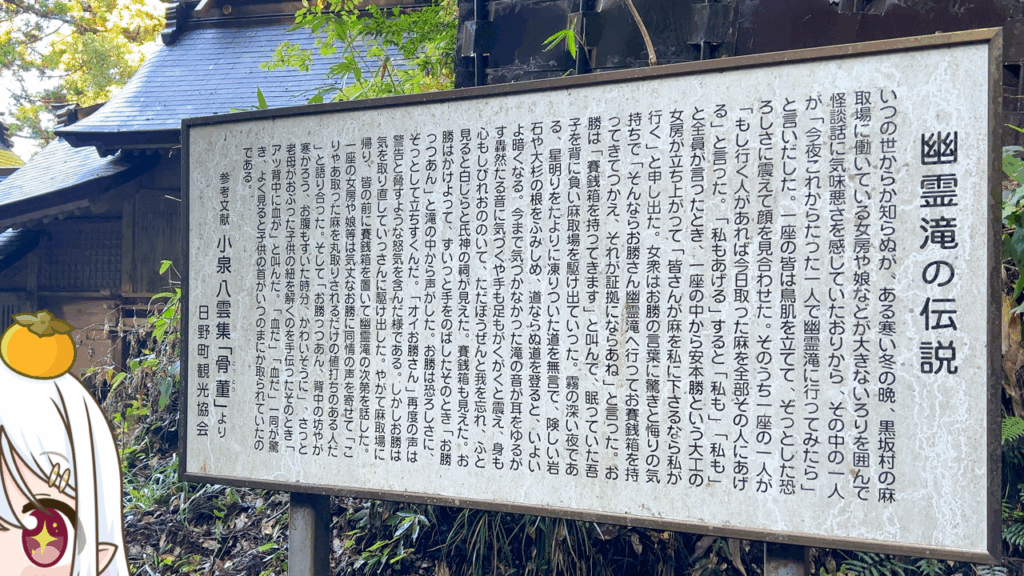 幽霊滝の伝説
いつの世からか知らぬが、ある寒い冬の晩、黒坂村の麻
取場に働いている女房や娘などが大きないろりを囲んで
怪談話に気味悪さを感じていたおりから、その中の一人
が「今夜これからたった一人で幽霊滝に行ってみたら」
と言いだした。一座の皆は鳥肌を立てて、そっとした恐
ろしさに震えて顔を見合わせた。そのうち一座の一人が
「もし行く人があれば今日取った麻を全部その人にあげ
る」と言った。「私もあげる」すると「私も」「私も」
と全員が言ったとき、一座の中から安本勝という大工の
女房が立ち上がって「皆さんが麻を私に下さるなら私が
行く」と申し出た。女衆はお勝の言葉に驚きと侮りの気
持ちで「そんならお勝さん幽霊滝へ行ってお賽銭箱を持
ってきてつかえ、それが証拠にならあね」と言った。お
勝は「賽銭箱を持ってきます」と叫んで、眠っていた吾
子を背に負い麻取場を駆け出ていった。霧の深い夜であ
る。星明りをたよりに凍りついた道を無言で、険しい岩
石や大杉の根をふみしめ、道ならぬ道を登ると、いよい
よ暗くなる。今まで気づかなかった滝の音が耳をゆるが
す轟然たる音に気づくや手も足もがくがくと震え、身も
心もしびれおののいて、ただぼうぜんと我を忘れ、ふと
見ると白じらと氏神の祠が見えた。賽銭箱も見えた。お
勝はかけよって、ずいっと手をのばしたそのとき「お勝
つつあん」と滝の中から声がした。お勝は恐ろしさに、
そっとして立ちすくんだ。「オイお勝さん」再度の声は
警告と脅すような怒気を含んだ様である。しかしお勝は
気を取り直していっさんに駆け出した。やがて麻取場に
帰り、皆の前に賽銭箱を置いて幽霊滝の次第を話した。
一座の女房や娘等は気丈なお勝に同情の声を寄せて「こ
りゃあ取った麻を丸取りされるだけの値打ちのある人だ
」と語り合った。そして「お勝つつあん、背中の坊やが
寒かろう、お腹もすいた時分、かわいそうに」、さっと
老母がおぶった子供の紐を解くのを手伝ったそのとき「
アッ背中に血が」と叫んだ。「血だ」「血だ」一同が驚
き、よく見ると子供の首がいつのまにか取られていたの
である。
参考文献 小泉八雲集「骨董」より
日野町観光協会